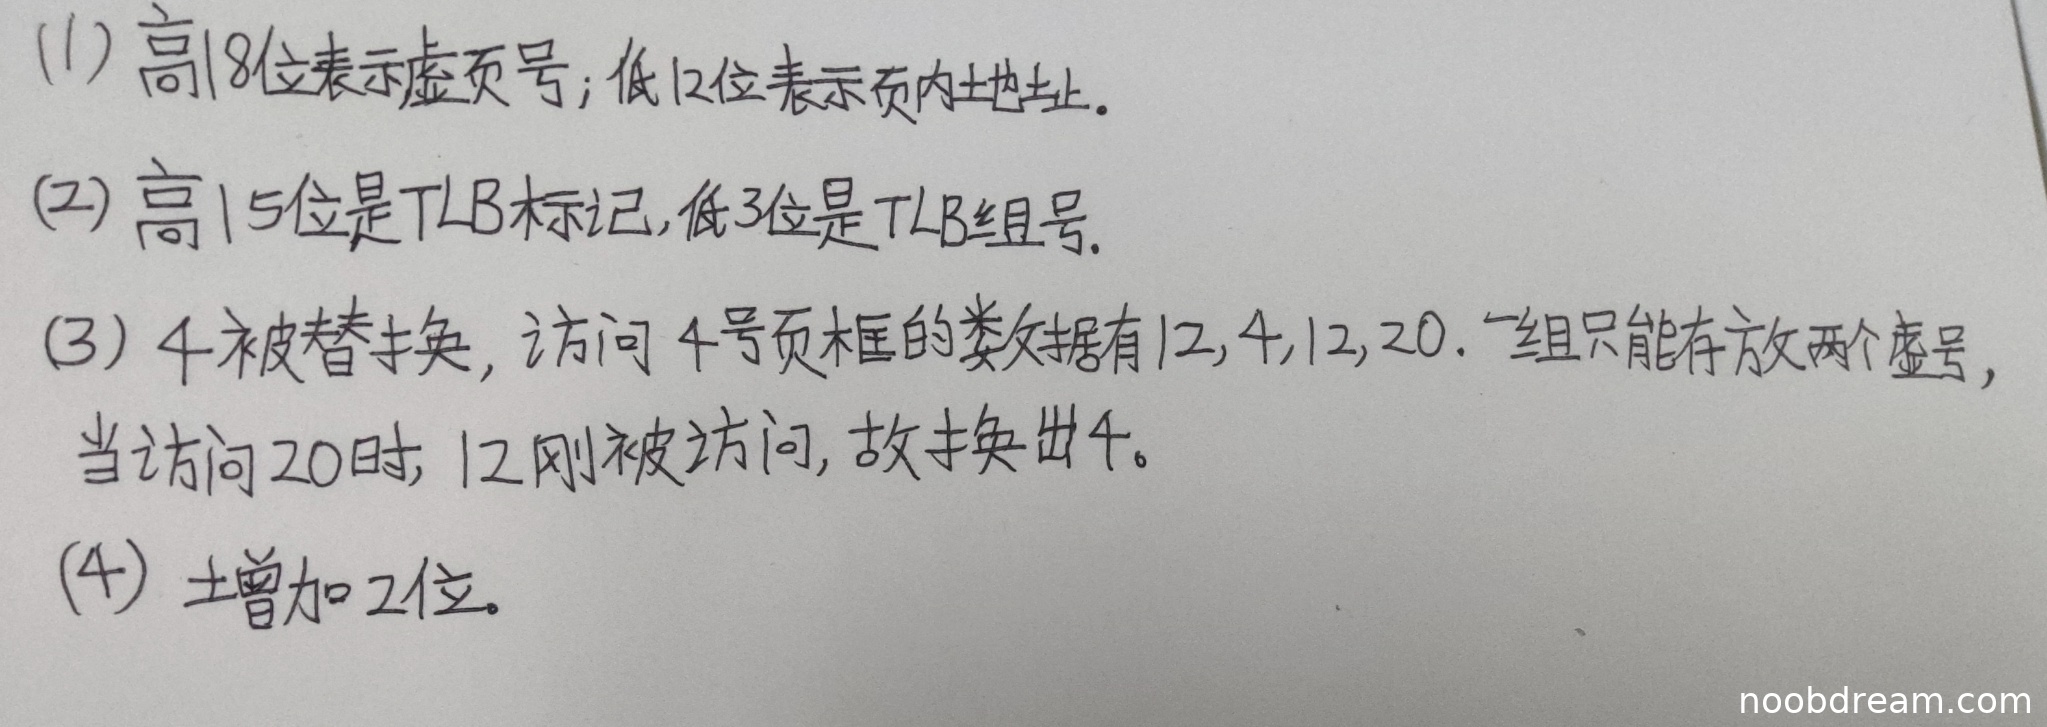 (1) 高18位表示虚页号；低12位表示页内地址.
(2) 高15位是TLB标记,低3位是TLB组号.
(3) 4被替换, 访问4号页框的数据有12,4,12,20. 一组只能存放两个虚号,
当访问20时, 12刚被访问, 故换出4。
(4) 增加2位。
noobdream.com